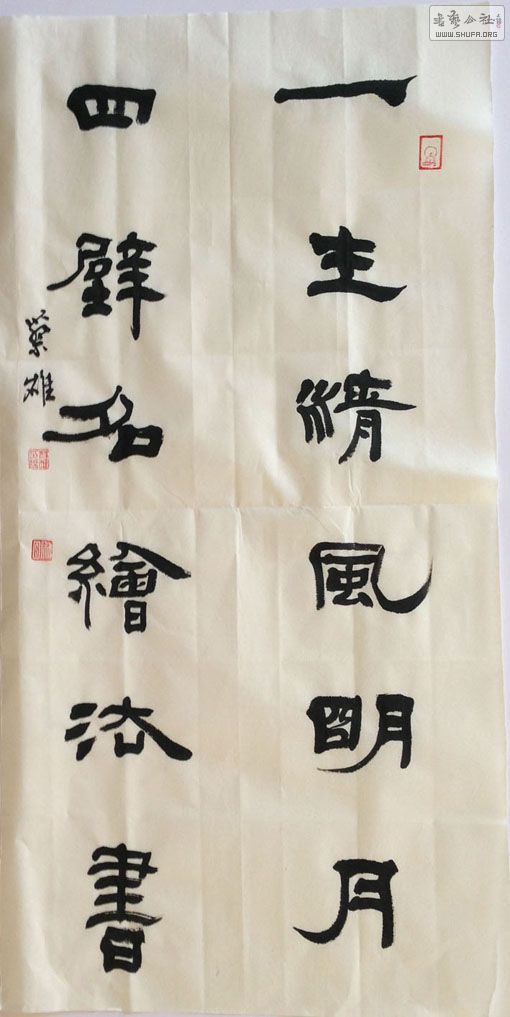 一生清風明月
四壁名繪法書
書藝公社
WWW.SHUFA.ORG